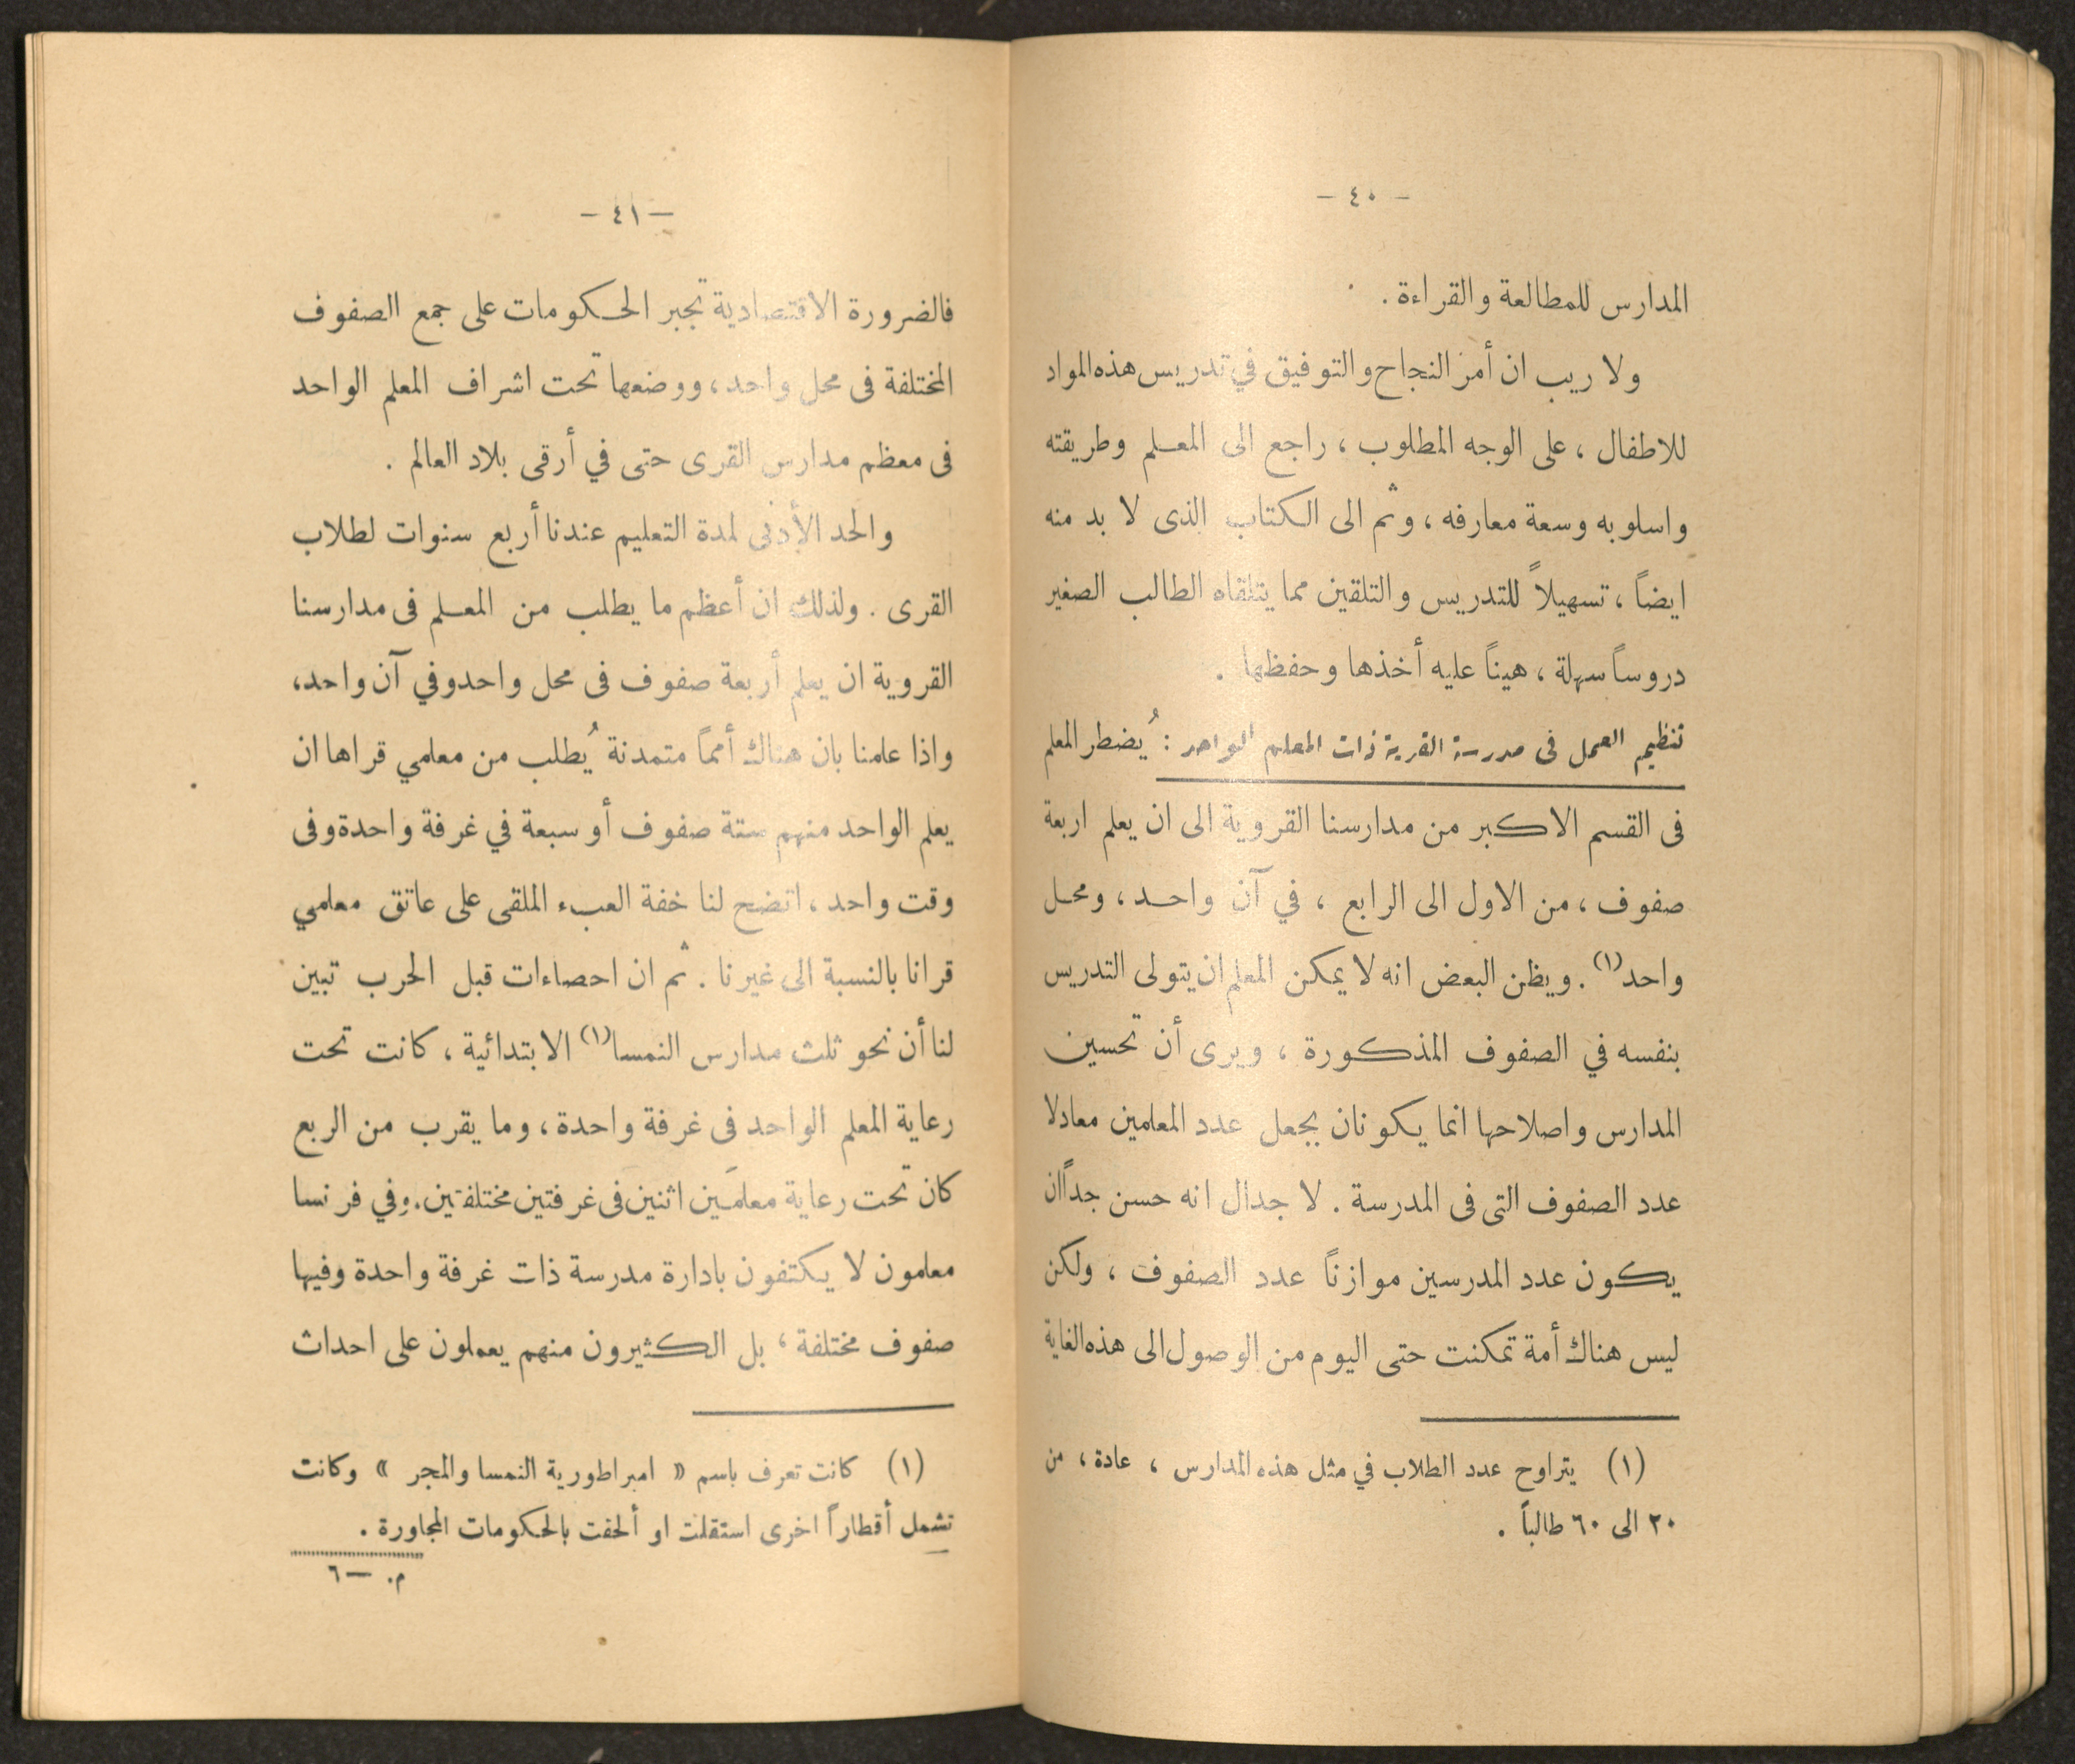 - ٤٠ -
المدارس للمطالعة والقراءة .
ولا ريب ان أمر النجاح والتوفيق في تدريس هذه المواد
للاطفال ، على الوجه المطلوب ، راجع الى المعلم وطريقته
واسلوبه وسعة معارفه ، وثم الى الكتاب الذى لا بد منه
ايضاً ، تسهيلاً للتدريس والتلقين مما يتلقاه الطالب الصغير
دروساً سهلة ، هيناً عليه أخذها وحفظها .
تنظيم العمل فى مدرسة القرية ذات المعلم الواحد : يُضطر المعلم
فى القسم الاكبر من مدارسنا القروية الى ان يعلم اربعة
صفوف ، من الاول الى الرابع ، في آن واحد ، ومحل
واحد (١) . ويظن البعض انه لا يمكن المعلم ان يتولى التدريس
بنفسه في الصفوف المذكورة ، ويرى أن تحسين
المدارس واصلاحها انما يكونان بجعل عدد المعلمين معادلا
عدد الصفوف التى فى المدرسة . لا جدال انه حسن جداً ان
يكون عدد المدرسين موازناً عدد الصفوف ، ولكن
ليس هناك أمة تمكنت حتى اليوم من الوصول الى هذه الغاية
(١) يتراوح عدد الطلاب في مثل هذه المدارس ، عادة ، من
٢٠ الى ٦٠ طالباً .
— ٤١ -
فالضرورة الاقتصادية تجبر الحكومات على جمع الصفوف
المختلفة فى محل واحد ، ووضعها تحت اشراف المعلم الواحد
فى معظم مدارس القرى حتى في أرقى بلاد العالم .
والحد الأدنى لمدة التعليم عندنا أربع سنوات لطلاب
القرى . ولذلك ان أعظم ما يطلب من المعلم فى مدارسنا
القروية ان يعلم أربعة صفوف فى محل واحد وفي آن واحد ،
واذا علمنا بان هناك أمماً متمدنة يُطلب من معلمي قراها ان
يعلم الواحد منهم ستة صفوف أو سبعة في غرفة واحدة وفى
وقت واحد ، اتضح لنا خفة العبء الملقى على عاتق معلمي
قرانا بالنسبة الى غيرنا . ثم ان احصاءات قبل الحرب تبين
لنا أن نحو ثلث مدارس النمسا (١) الابتدائية ، كانت تحت
رعاية المعلم الواحد فى غرفة واحدة ، وما يقرب من الربع
كان تحت رعاية معلمَين اثنين فى غرفتين مختلفتين . وفي فرنسا
معلمون لا يكتفون بادارة مدرسة ذات غرفة واحدة وفيها
صفوف مختلفة ، بل الكثيرون منهم يعملون على احداث
(١) كانت تعرف باسم « امبراطورية النمسا والمجر » وكانت
تشمل أقطاراً اخرى استقلت او ألحقت بالحكومات المجاورة .
م. — ٦